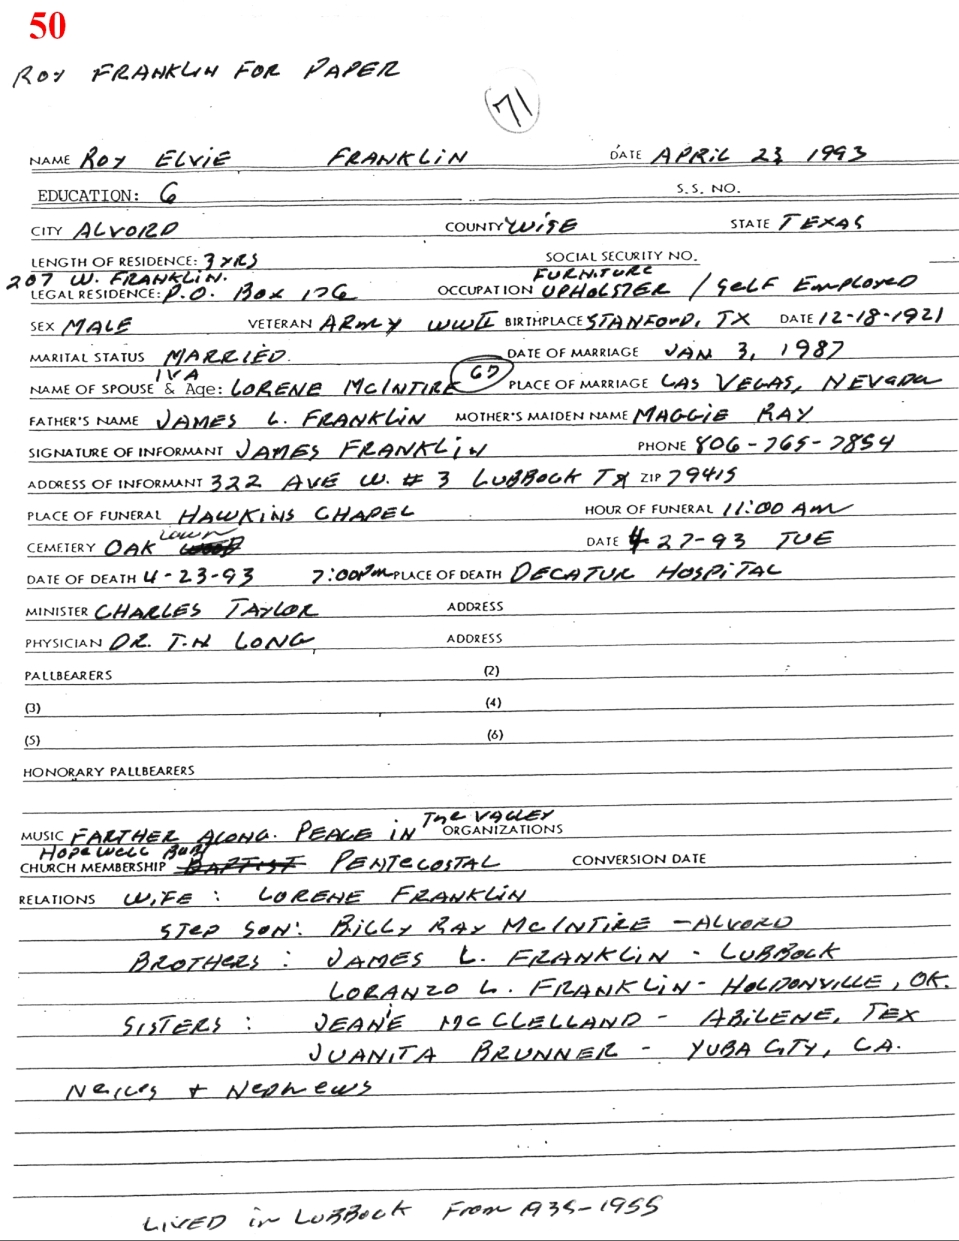 50
ROY FRANKLIN FOR PAPER
71
NAME ROY ELVIE FRANKLIN DATE APRIL 23 1993
EDUCATION: 6 S.S. NO.
CITY ALVORD COUNTY WISE STATE TEXAS
LENGTH OF RESIDENCE: 3 YRS SOCIAL SECURITY NO.
207 W. FRANKLIN. FURNITURE
LEGAL RESIDENCE: P.O. BOX 176 OCCUPATION UPHOLSTER / SELF EMPLOYED
SEX MALE VETERAN ARMY WWII BIRTHPLACE STANFORD, TX DATE 12-18-1921
MARITAL STATUS MARRIED. DATE OF MARRIAGE JAN 3, 1987
IVA
NAME OF SPOUSE & Age: LORENE MCINTIRE PLACE OF MARRIAGE LAS VEGAS, NEVADA
FATHER'S NAME JAMES L. FRANKLIN MOTHER'S MAIDEN NAME MAGGIE RAY
SIGNATURE OF INFORMANT JAMES FRANKLIN PHONE 806-765-7854
ADDRESS OF INFORMANT 322 AVE W. # 3 LUBBOCK TX ZIP 79415
PLACE OF FUNERAL HAWKINS CHAPEL HOUR OF FUNERAL 11:00 AM
Lawn
CEMETERY OAK DATE 4 27-93 TUE
DATE OF DEATH 4-23-93 7:00PM PLACE OF DEATH DECATUR HOSPITAL
MINISTER CHARLES TAYLOR ADDRESS
PHYSICIAN DR. T.H LONG ADDRESS
PALLBEARERS (2)
(3) (4)
(5) (6)
HONORARY PALLBEARERS
THE VALLEY
MUSIC FARTHER ALONG. PEACE IN ORGANIZATIONS
HOPEWELL
CHURCH MEMBERSHIP BAPTIST PENTECOSTAL CONVERSION DATE
RELATIONS WIFE: LORENE FRANKLIN
STEP SON: BILLY RAY MCINTIRE - ALVORD
BROTHERS: JAMES L. FRANKLIN - LUBBOCK
LORANZO L. FRANKLIN - HOLDONVILLE, OK.
SISTERS: JEANE MCCLELLAND - ABILENE, TEX
JUANITA BRUNNER - YUBA CITY, CA.
Neices + Nephews
LIVED in LUBBOCK From 1935-1955